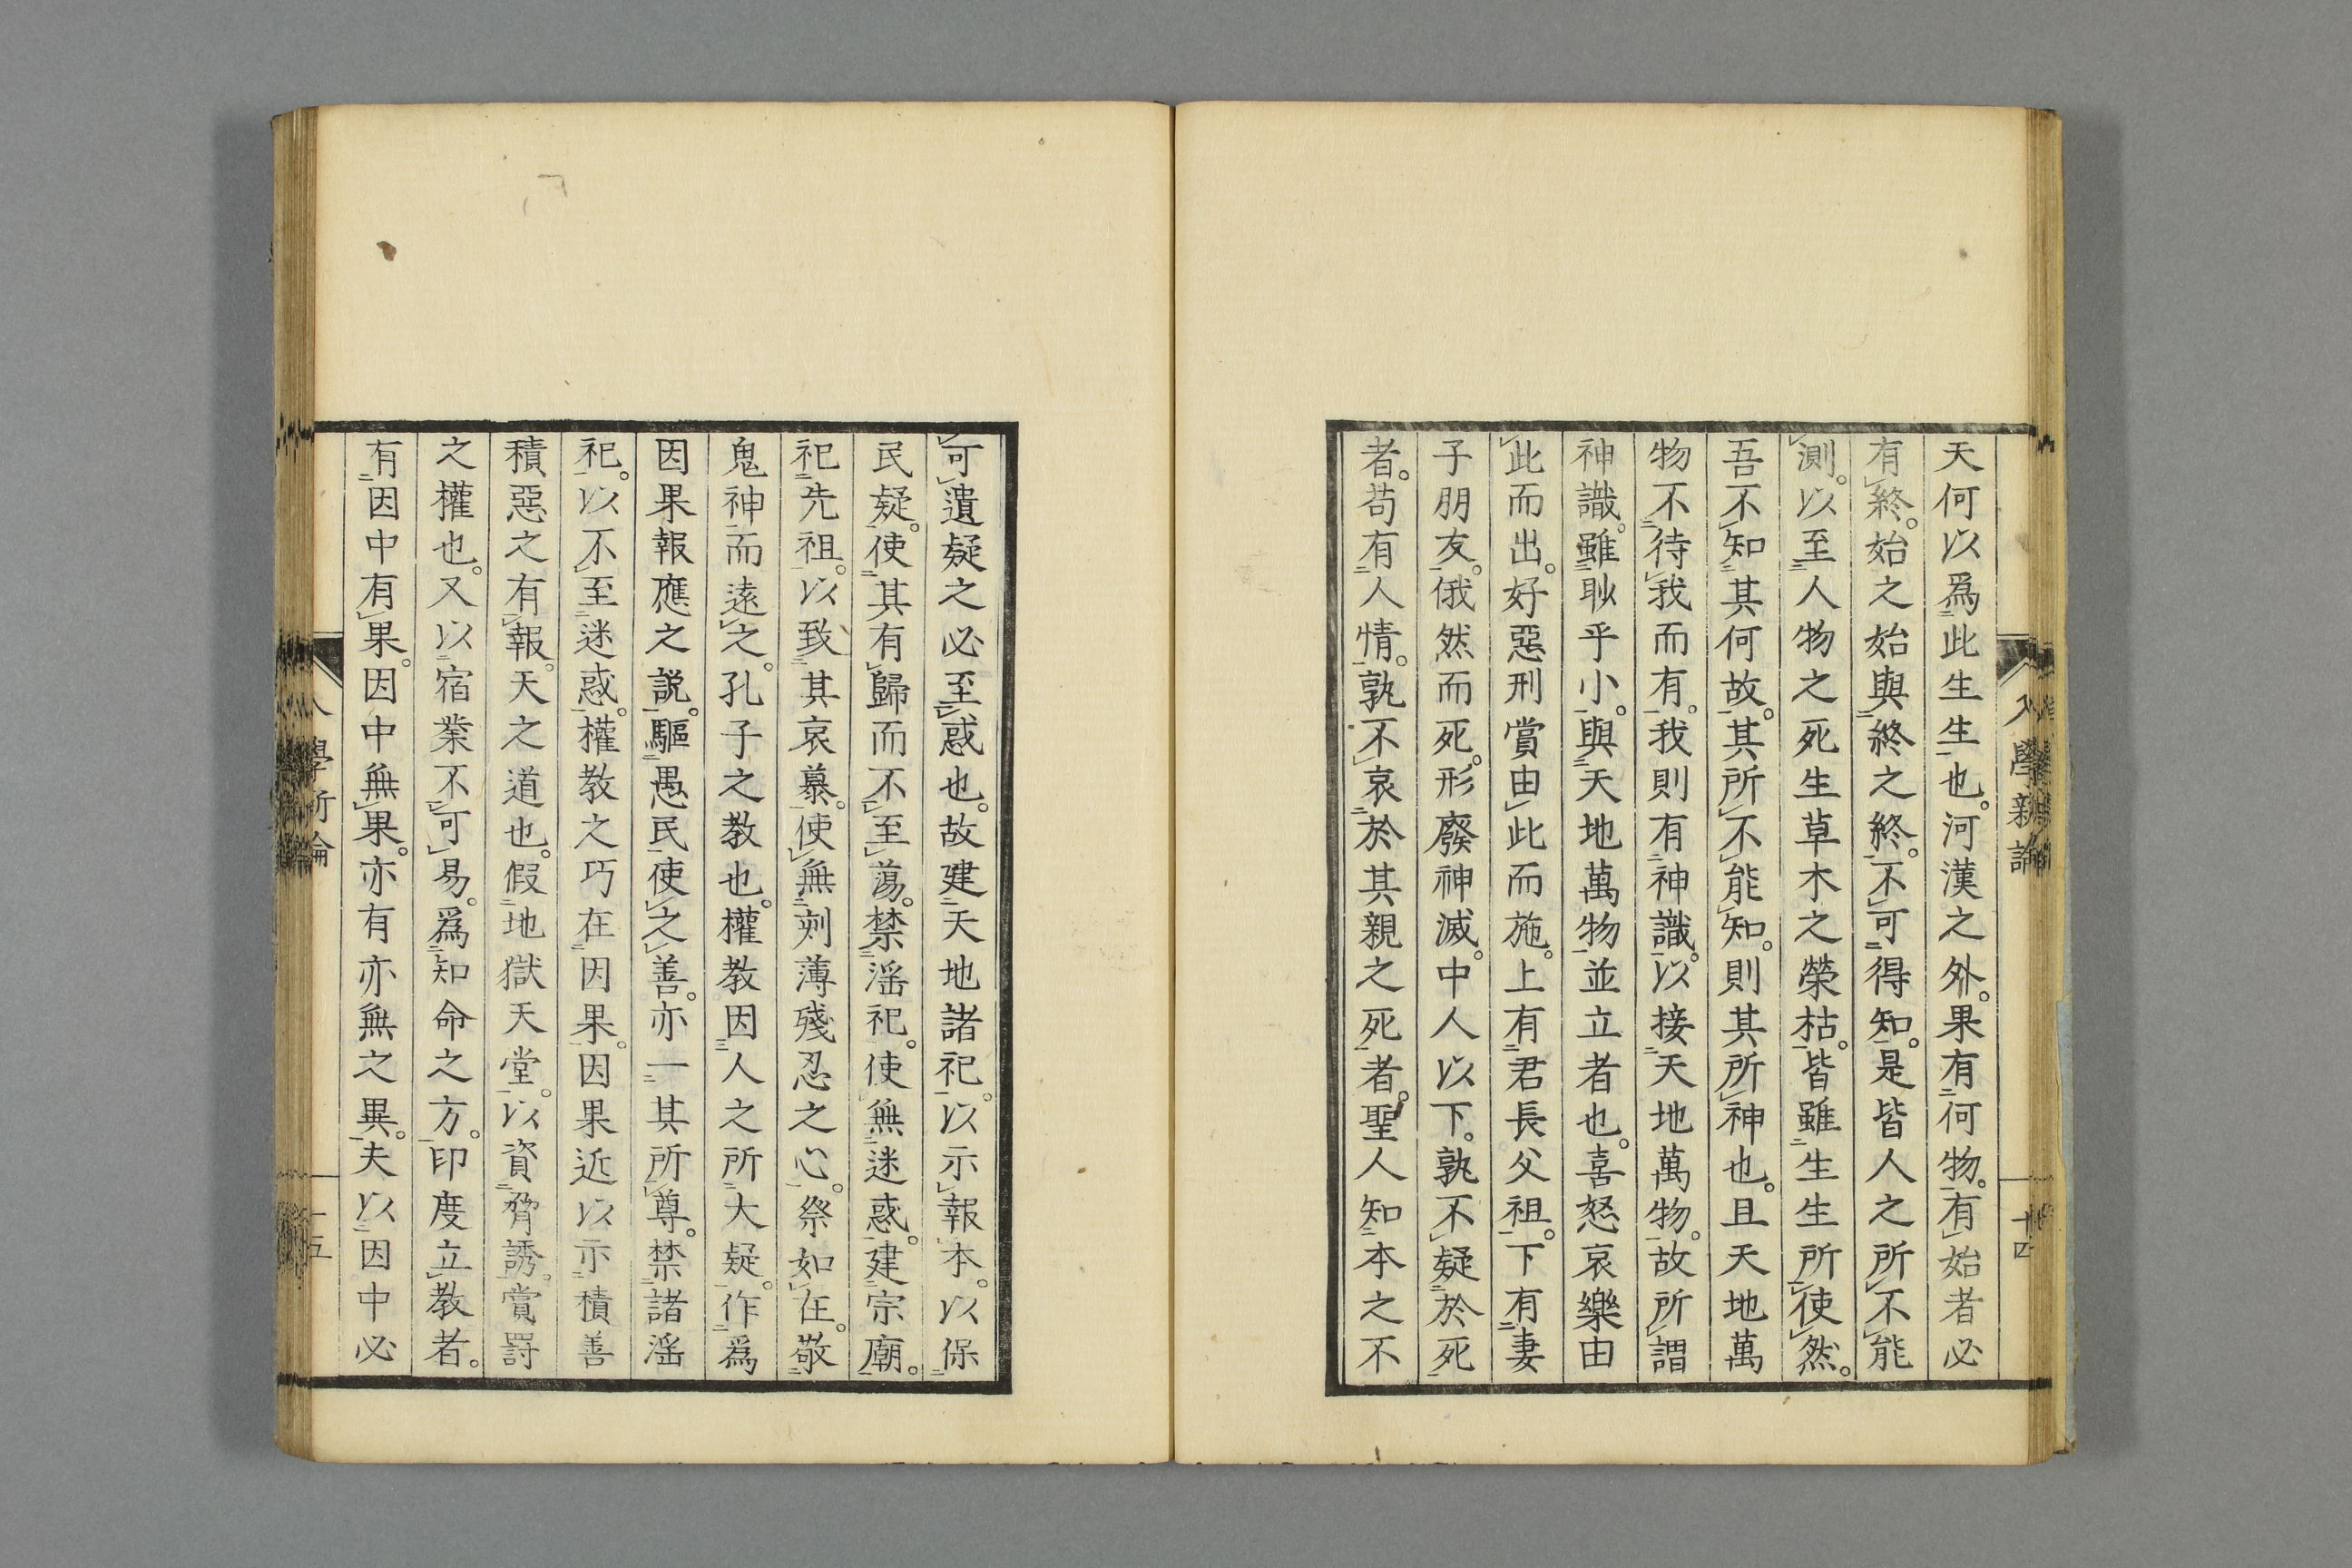 天何以爲此生生也。河漢之外。果有何物。有始者必
有終。始之始與終之終。不可得知。是皆人之所不能
測。以至人物之死生草木之榮枯。皆雖生生所使然。
吾不知其何故。其所不能知。則其所神也。且天地萬
物不待我而有。我則有神識。以接天地萬物。故所謂
神識。雖眇乎小。與天地萬物並立者也。喜怒哀樂由
此而出。好惡刑賞由此而施。上有君長父祖。下有妻
子朋友。俄然而死。形廢神滅。中人以下。孰不疑於死
者。苟有人情。孰不哀於其親之死者。聖人知本之不
入學新論
十四
可遺疑之必至惑也。故建天地諸祀。以示報本。以保
民疑。使其有歸而不至蕩。禁淫祀。使無迷惑。建宗廟。
祀先祖。以致其哀慕。使無刻薄殘忍之心。祭如在。敬
鬼神而遠之。孔子之教也。權教因人之所大疑。作爲
因果報應之説。驅愚民使之善。亦一其所尊。禁諸淫
祀。以不至迷惑。權教之巧在因果。因果近以示積善
積惡之有報。天之道也。假地獄天堂。以資脅誘。賞罰
之權也。又以宿業不可易。爲知命之方。印度立教者。
有因中有果。因中無果。亦有亦無之異。夫以因中必
學新論
十五